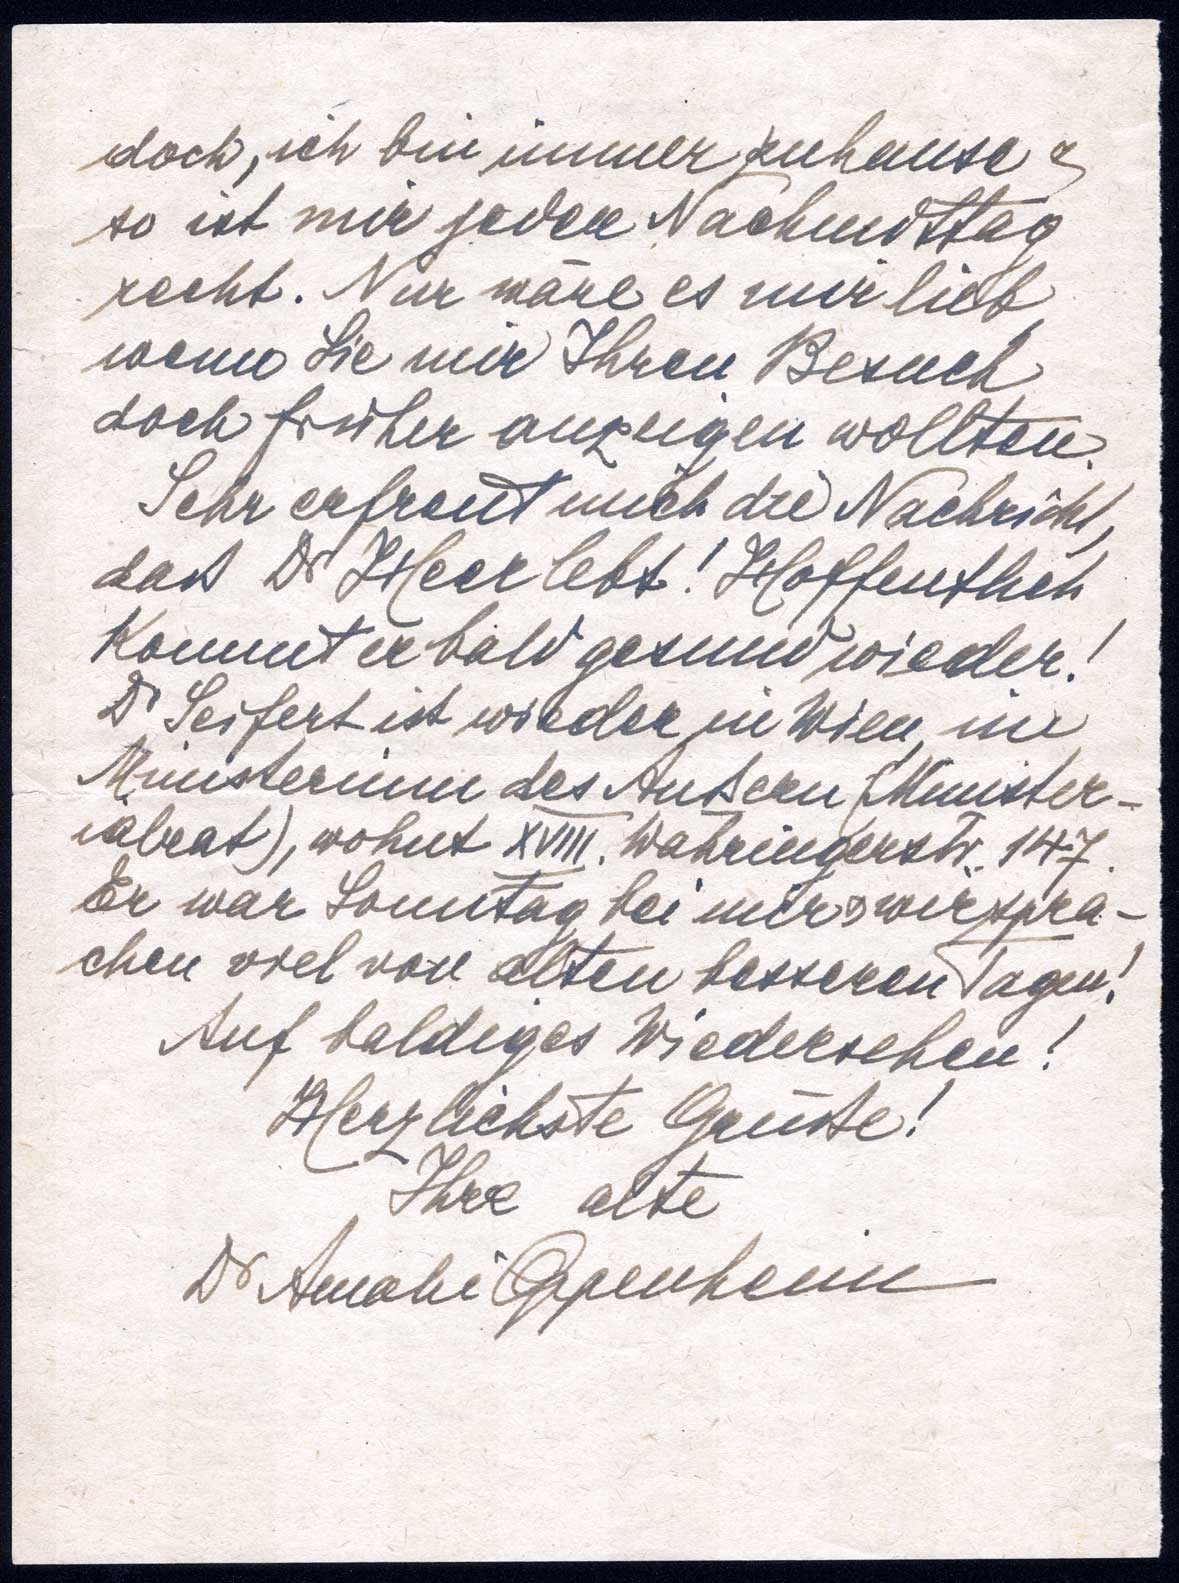 doch, ich bin immer zuhause &
so ist mir jeder Nachmittag
recht. Nur wäre es mir lieb,
wenn Sie mir Ihren Besuch
doch früher anzeigen wollten.
Sehr erfreut mich die Nachricht,
daß Dr Heer lebt! Hoffentlich
kommt er bald gesund wieder!
Dr Seifert ist wieder in Wien, im
Ministerium des Äußern (Minister-
ialrat), wohnt XVIII. Währingerstr. 147.
Er war Sonntag bei mir & wir spra-
chen viel von alten besseren Tagen!
Auf baldiges Wiedersehen!
Herzlichste Grüße!
Ihre alte
Dr Amalie Oppenheim